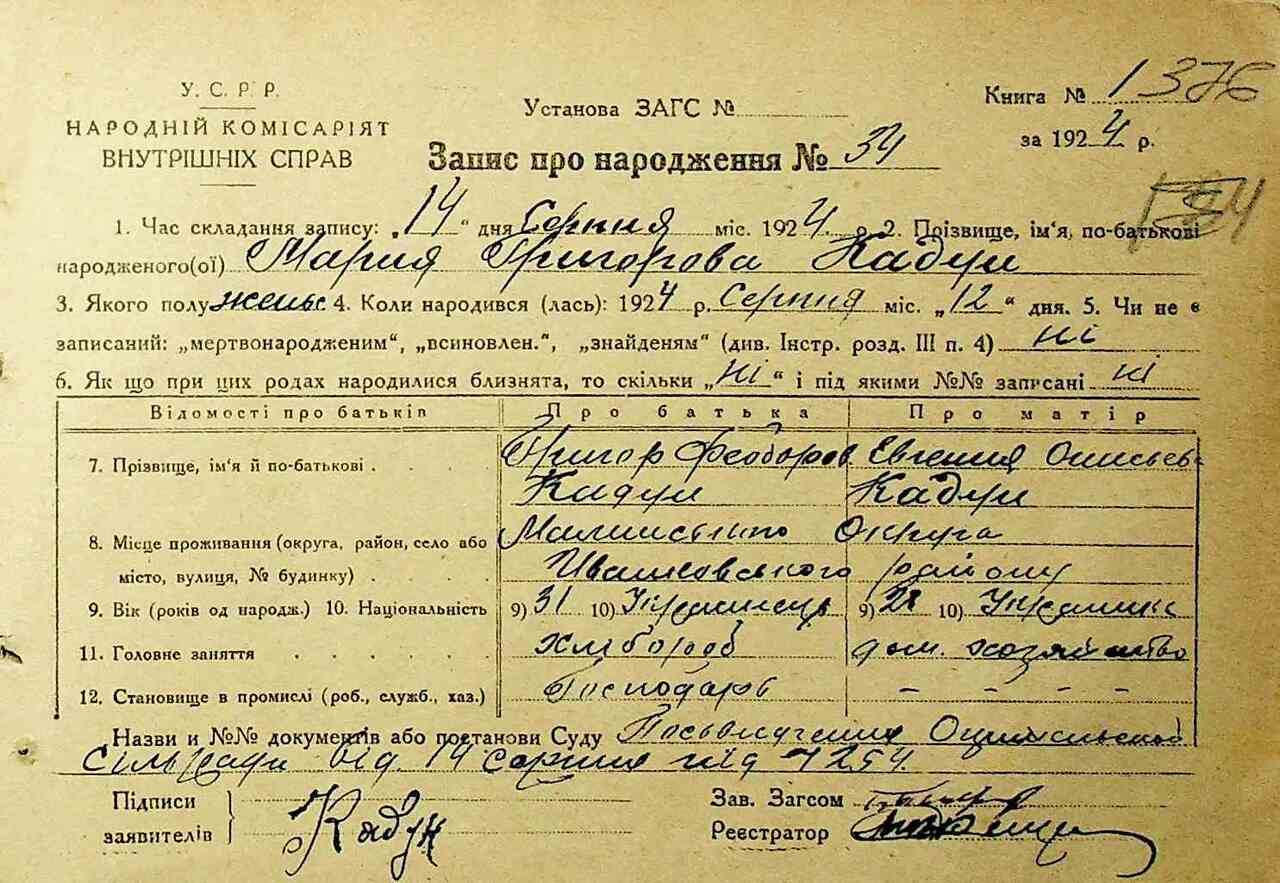 У. С. Р Р.
НАРОДНІЙ КОМІСАРІЯТ
ВНУТРІШНІХ СПРАВ
Установа ЗАГС №
Книга № 1376
за 1924 р.
Запис про народження № 34
1. Час складання запису: „14“ дня Серпня міс. 1924. р. 2. Прізвище, ім'я, по-батькові
народженого(ої) Мария Григорова Кадун
3. Якого полу женьс. 4. Коли народився (лась): 1924 р. Серпня міс. „12“ дня. 5. Чи не є
записаний: „мертвонародженим“, „всиновлен.“, „знайденям“ (див. Інстр. розд. III п. 4) ні
6. Як що при цих родах народилися близнята, то скільки „ні“ і під якими №№ записані ні
Відомості про батьків Про батька Про матір
7. Прізвище, ім'я й по-батькові . . . . Григор Феодоров Евгения
Кадун Кадун
8. Місце проживання (округа, район, село або Округа
місто, вулиця, № будинку) . . . . району
9. Вік (років од народж.) 10. Національність 9) 31 10) Українець 9) 28 10) Українка
11. Головне заняття . . . . . хлібороб дом. хозяйство
12. Становище в промислі (роб., служб., хаз.) Господарь – – – – –
Назви и №№ документів або постанови Суду Посьвидчення
Сільради від. 14 серпня під 7254.
Підписи
заявителів } Кадун
Зав. Загсом
Реєстратор